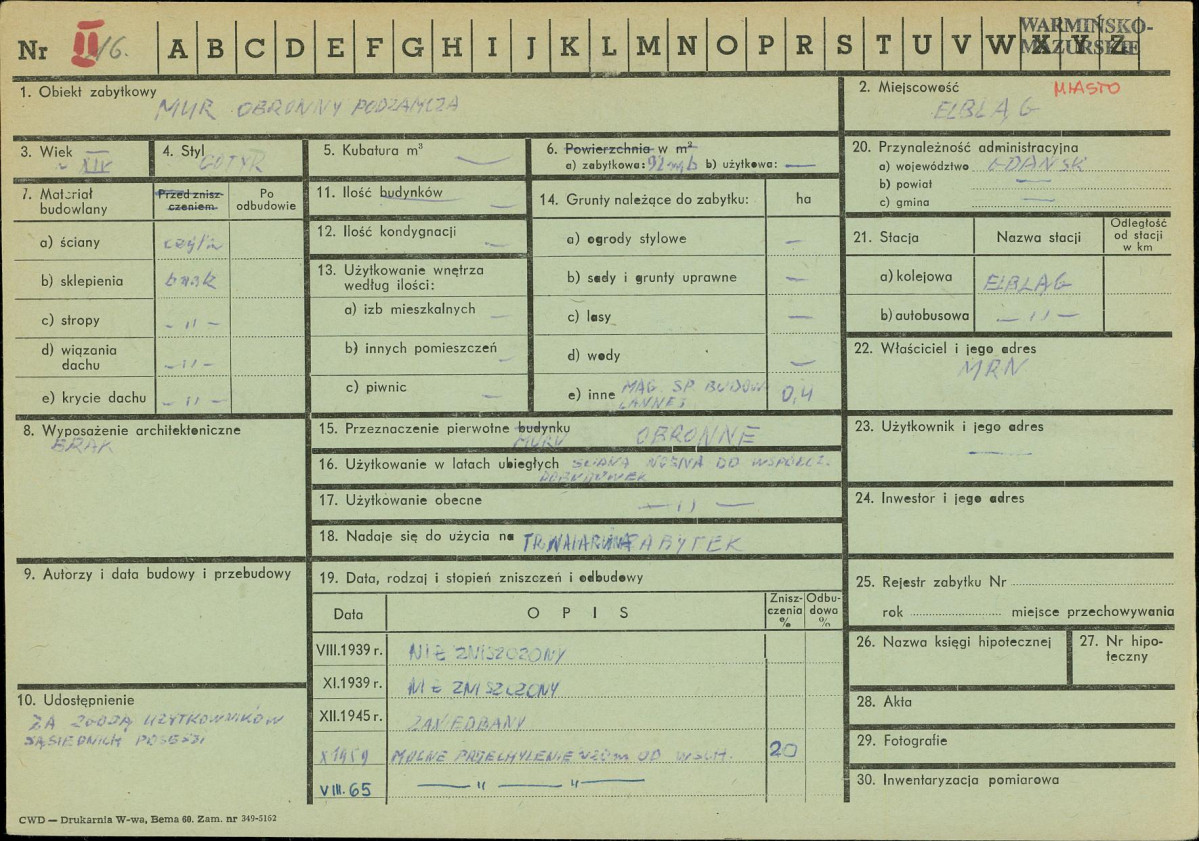 Nr II/6. A B C D E F G H I J K L M N O P R S T U V W X Y Z
WARMIŃSKO-
MAZURSKIE
1. Obiekt zabytkowy MUR OBRONNY PODZAMCZA
2. Miejscowość MIASTO
ELBLĄG
3. Wiek ~ XIV
4. Styl GOTYK
5. Kubatura m³ —
6. Powierzchnia w m²
a) zabytkowa: b) użytkowa: —
20. Przynależność administracyjna
a) województwo GDAŃSK
b) powiat —
c) gmina —
7. Materiał budowlany
Przed zniszczeniem
Po odbudowie
a) ściany
b) sklepienia brak
c) stropy — 11 —
d) wiązania dachu — 11 —
e) krycie dachu — 11 —
11. Ilość budynków —
12. Ilość kondygnacji —
13. Użytkowanie wnętrza
według ilości:
a) izb mieszkalnych —
b) innych pomieszczeń —
c) piwnic —
14. Grunty należące do zabytku: ha
a) ogrody stylowe —
b) sady i grunty uprawne —
c) lasy —
d) wody —
e) inne MAG. SP. BUDOW
LANNEJ 0,4
21. Stacja Nazwa stacji
Odległość
od stacji
w km
a) kolejowa ELBLĄG
b) autobusowa — 11 —
22. Właściciel i jego adres
MRN
8. Wyposażenie architektoniczne
BRAK
15. Przeznaczenie pierwotne budynku
MURU OBRONNE
16. Użytkowanie w latach ubiegłych ŚCIANA NOŚNA DO WSPÓŁCZ.
DOBUDÓWEK
17. Użytkowanie obecne — 11 —
18. Nadaje się do użycia na ZABYTEK
23. Użytkownik i jego adres
—
24. Inwestor i jego adres
9. Autorzy i data budowy i przebudowy
19. Data, rodzaj i stopień zniszczeń i odbudowy
Data O P I S
Znisz-
czenia
%
Odbu-
dowa
%
VIII.1939 r. NIE ZNISZCZONY
XI.1939 r. NIE ZNISZCZONY
XII.1945 r. ZANIEDBANY
X 1959 MOCNE PRZECHYLENIE ~20m OD WSCH. 20
VIII. 65 — " — " —
10. Udostępnienie
ZA ZGODĄ UŻYTKOWNIKÓW
SĄSIEDNICH POSESJI
25. Rejestr zabytku Nr
rok miejsce przechowywania
26. Nazwa księgi hipotecznej
27. Nr hipo-
teczny
28. Akta
29. Fotografie
30. Inwentaryzacja pomiarowa
CWD — Drukarnia W-wa, Bema 60. Zam. nr 349-5162